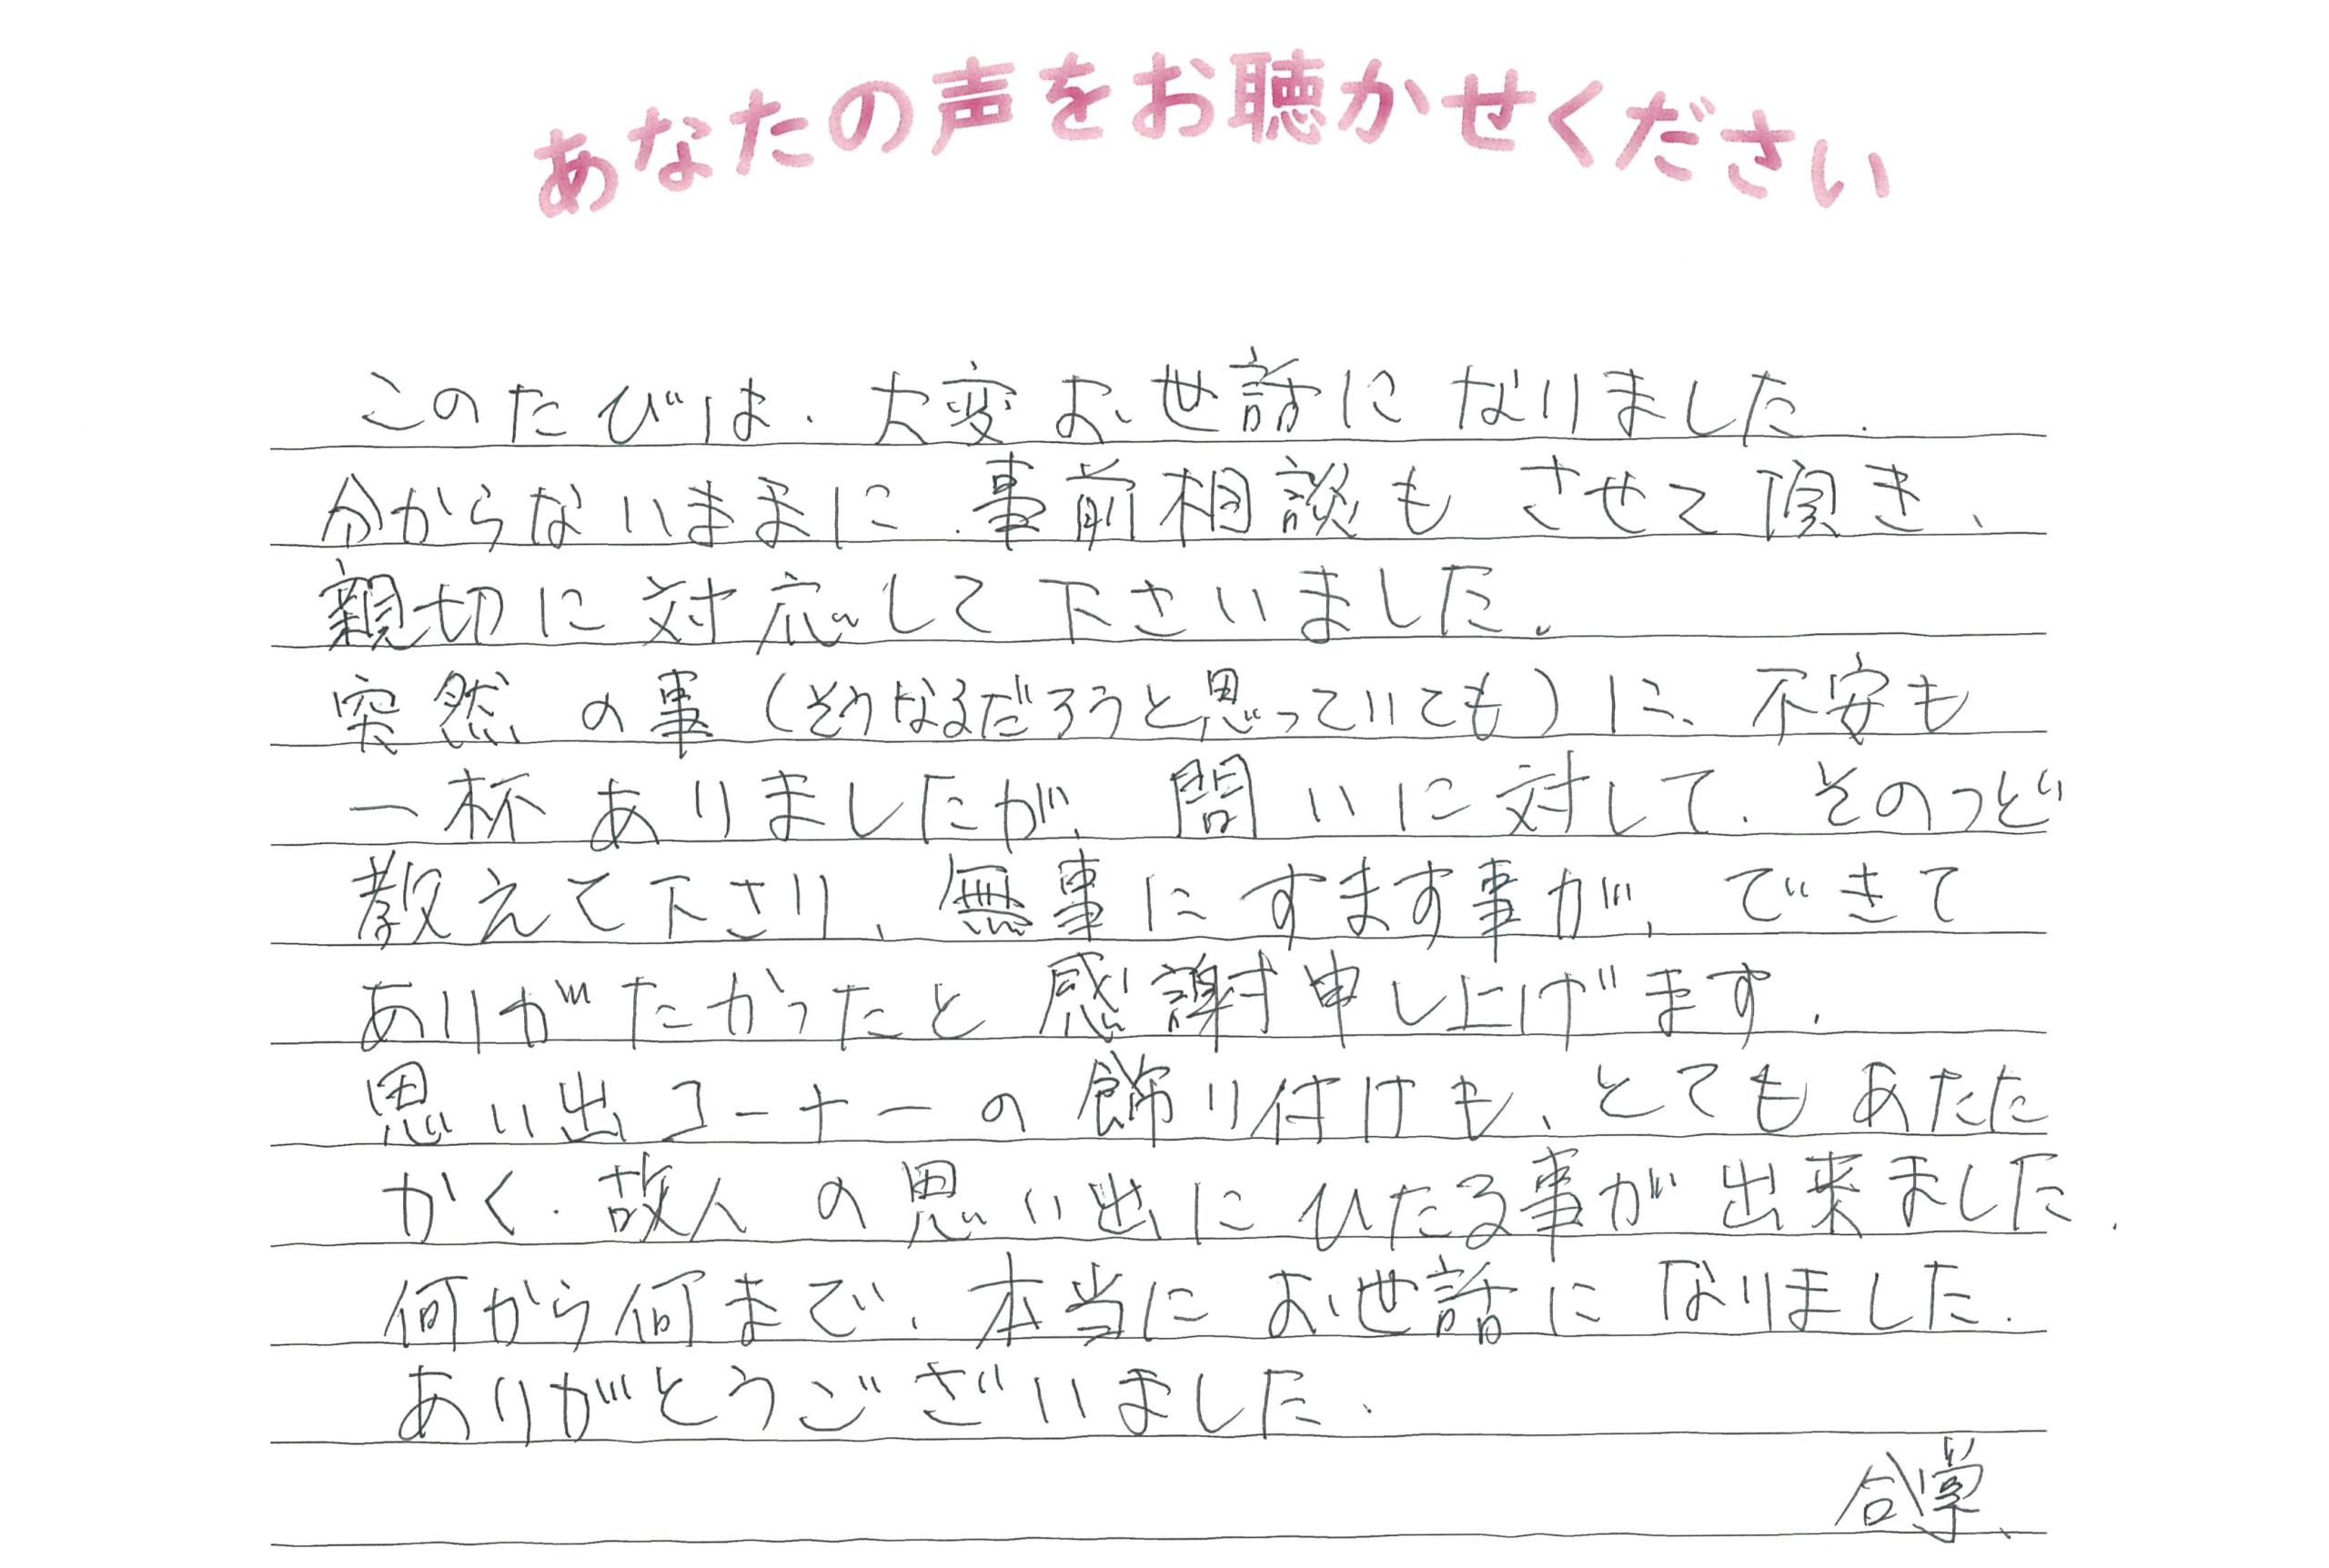 あなたの声をお聴かせください
このたびは、大変お世話になりました。
分からないままに、事前相談もさせて頂き、
親切に対応して下さいました。
突然の事（そうなるだろうと思っていても）に、不安も
一杯ありましたが、問いに対して、そのつど
教えて下さり、無事にすます事が、できて
ありがたかったと感謝申し上げます。
思い出コーナーの飾り付けも、とてもあたた
かく、故人の思い出にひたる事が出来ました。
何から何まで、本当にお世話になりました。
ありがとうございました。
合掌